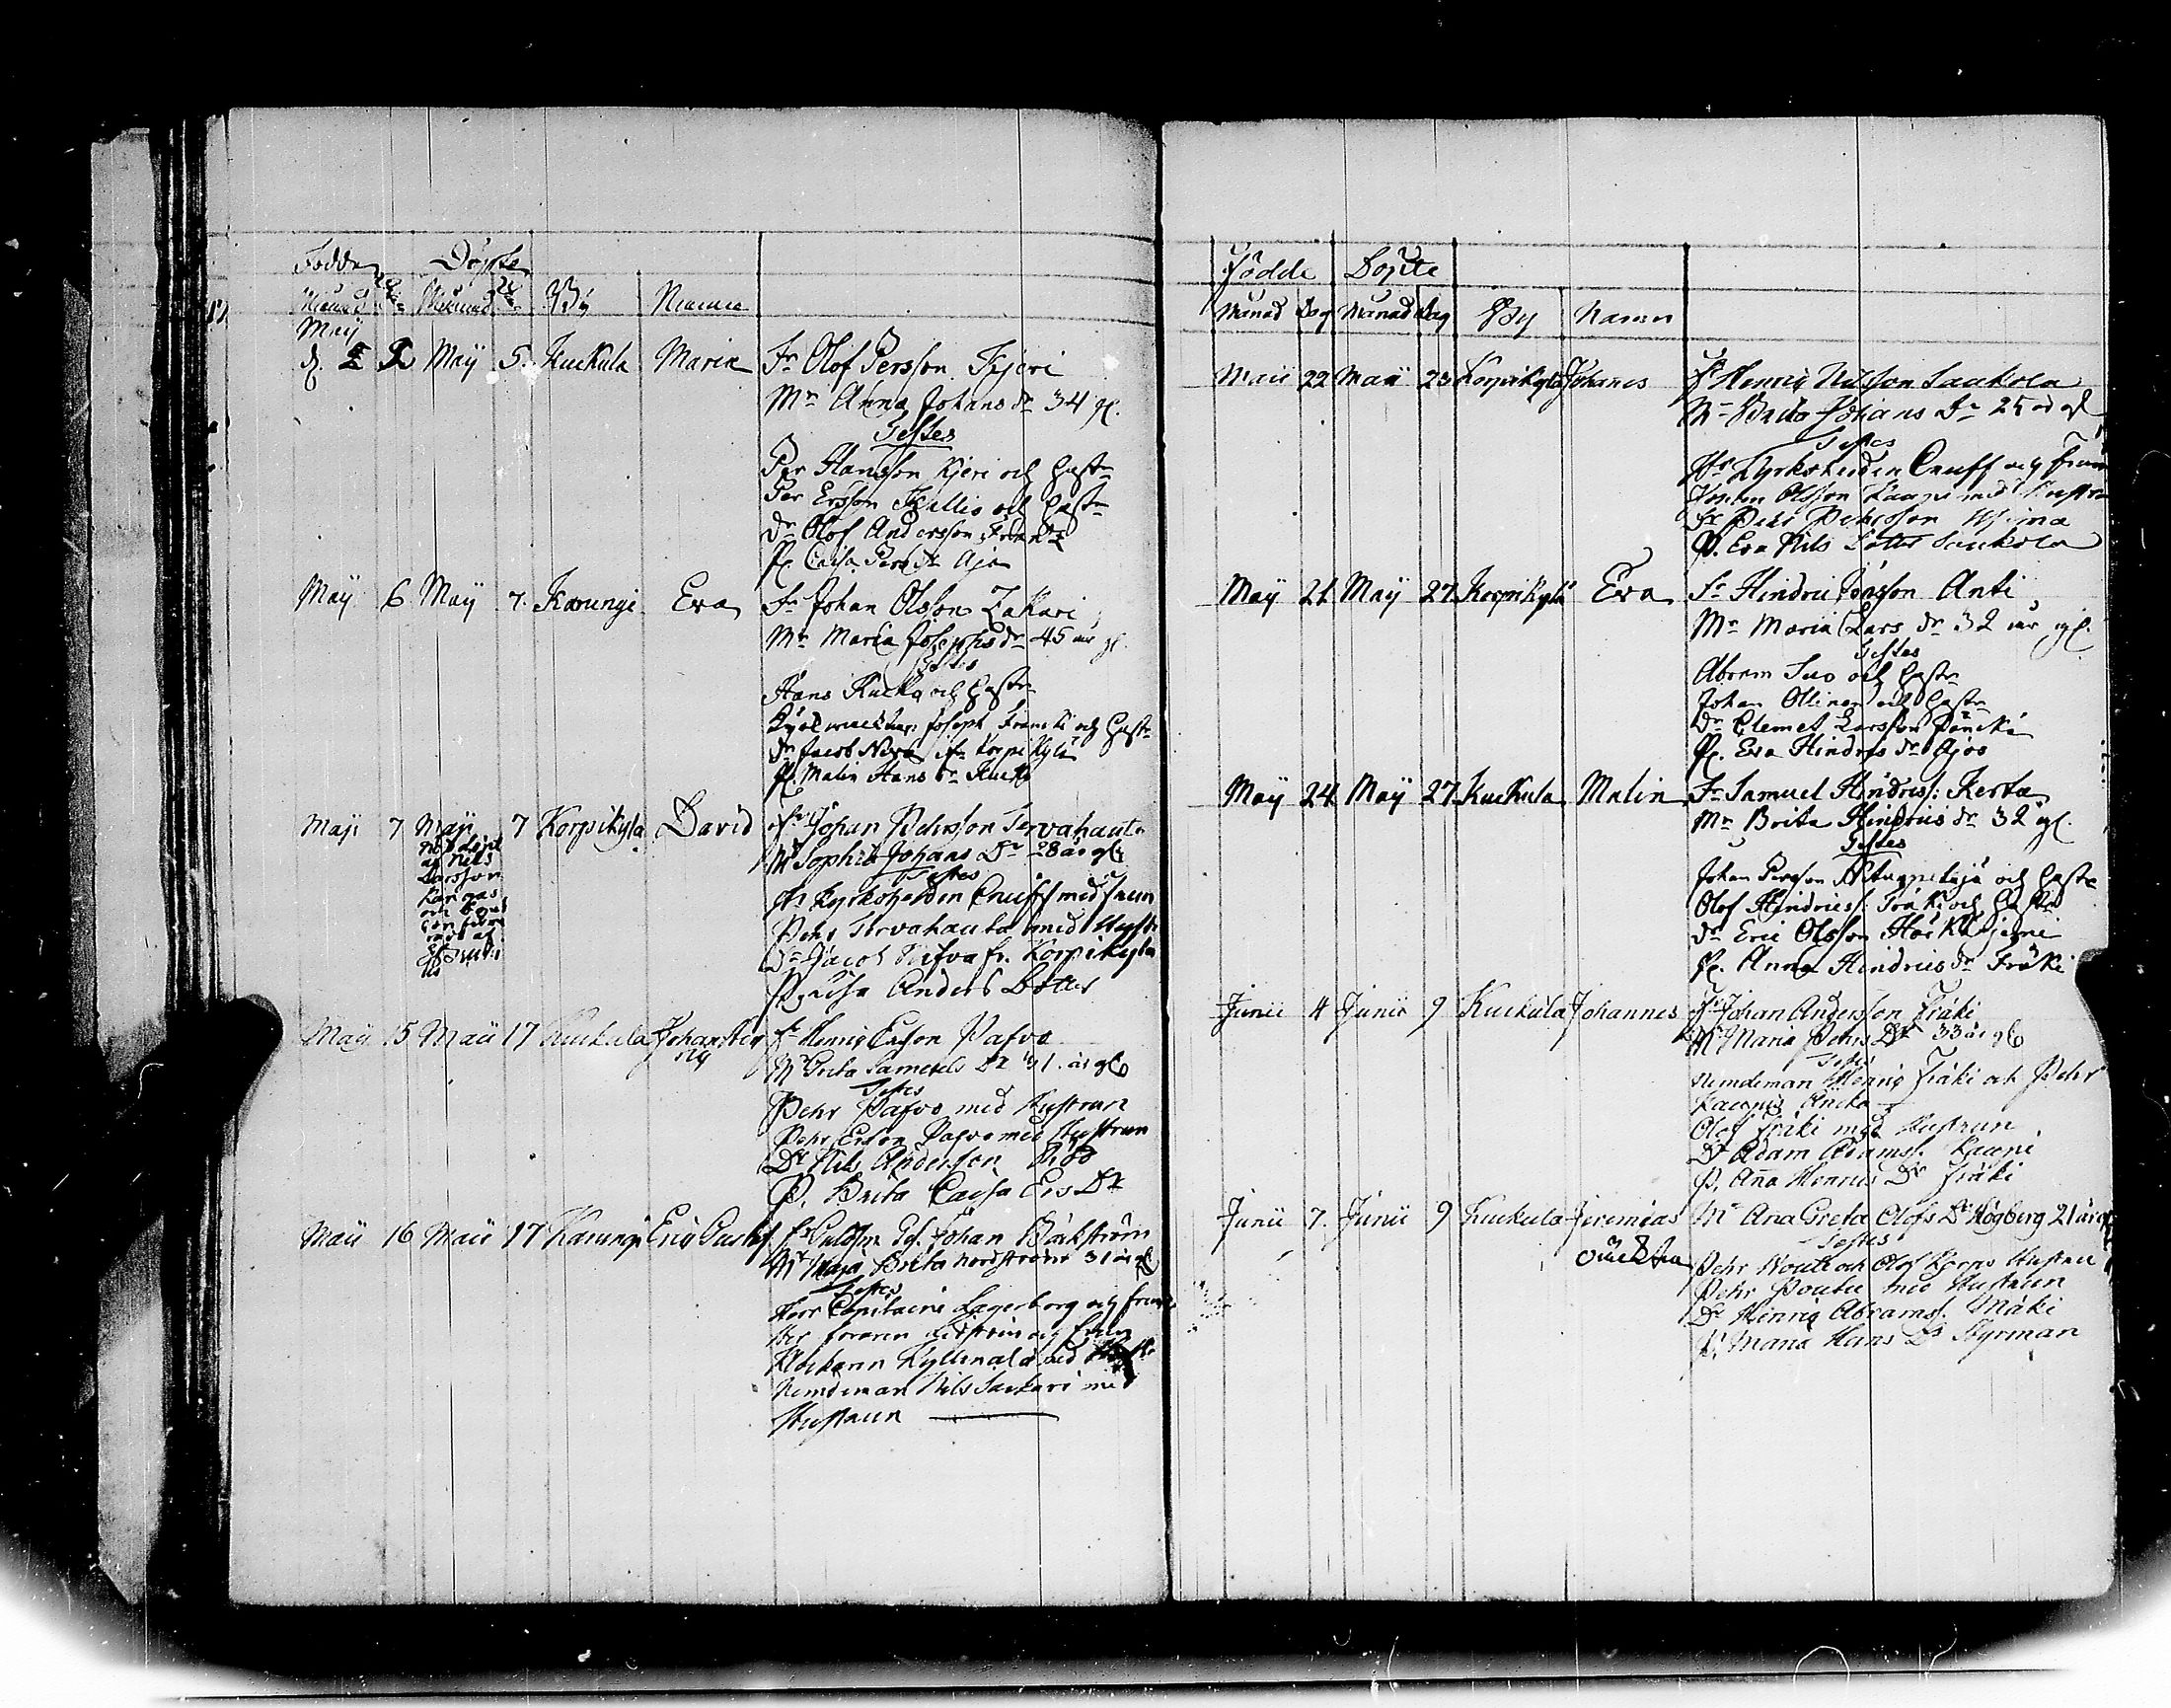 Födde Döpte
Månad Dag Månad Dag By Namn
May
d. 2 May 5. Kuckula Maria Fr Olof Persson Kjeri
Mr Anna Johans dr 34 gl.
Testes
Per Hansson Kjeri och Hustr
Per Ersson Kellio och Hustr
Dr Olof Andersson Frantz
P. Caisa Pers dr Ajo
May 6 May 7. Karungi Eva Fr Johan Olsson Zakari
Mr Maria Josephs dr 45 år gl.
Testes
Hans Kucko och Hustr
Joseph Francki och Hustr
Dr Jacob Niva ifr Korpikylä
P. Malin Hans dr Kucko
Maji 7 Maji 7 Korpikyla David Fr Johan Pehrsson Tervahauta
Nöddöpt
af Nils
Larsson
Kangas
och
Confirme
radt af
Mr Sophia Johans Dr 28 år gl
Testes
Hr Kyrkoherden Cnuff med frun
Pehr Tervahauta med Hustr
Dr Jacob Nifva fr. Korpikyla
P. Caisa Anders Dotter
May 15 Maii 17 Kuckula Johan Hen
riq
Fr Henriq Ersson Pafvo
Mr Greta Samuels Dr 31. år gl
Testes
Pehr Pafvo med Hustrun
Pehr Erson Pafvo med Hustrun
Dr Nils Anderson
P. Brita Caisa Ers Dr
Maii 16 Maii 17 Karungi Eriq Gustaf Fr Johan Bäckström
Mr Maja Brita Nordström 31 år gl
Testes
Herr Capitaine Lagerborg och frun
Her Lidström och frun
Klockarn Kyllmalä med
Nemdeman Nils Sackari med
Hustrun
Födde Döpte
Månad Dag Månad Dag By Namn
Maii 22 Maii 23 Korpikyla Johanes Fr Henriq Nilsson Saukola
Mr Brita Johans Dr 25 år gl
Testes
Hr Kyrkoherden Cnuff och frun
Olsson Kaupi med Hustru
Dr Pehr Pehrsson
P. Eva Nils Dotter Saukola
May 21 May 27 Korpikylä Eva Fr Hindric Jönsson Anti
Mr Maria Lars dr 32 år gl.
Testes
Abram Suo och Hustr
Johan Ollinen och Hustr
Dr Clemet Larsson
P. Eva Hindrs dr Ajoo
May 24 May 27 Kuckula Malin Fr Samuel Hindricss: Kerta
Mr Brita Hindrics dr 32 gl.
Testes
Johan Persson och Hustr
Olof Hindricss. Fräki och Hustr
Dr Eric Olsson
P. Anna Hindrics dr Fräki
Junii 4 Junii 9 Kuckula Johannes Fr Johan Andersson Fräki
Mr Maria Pehrs Dr 33 år gl
Testes
Nemdeman Henriq Fräki och Pehr
Kaupis
Olof Fräki med Hustrun
Dr Adam Adamss. Kaupi
P. Ana Henrics Dr Fräki
Junii 7. Junii 9 Kuckula Jeremias
oäckta
Mr Ana Greta Olofs Dr Högberg 21 år gl
Testes
Pehr Kouti och Olof Korpis Hustru
Pehr Poutu med Hustrun
Dr Henriq Abramss. Mäki
P. Maria Hans Dr Styrman